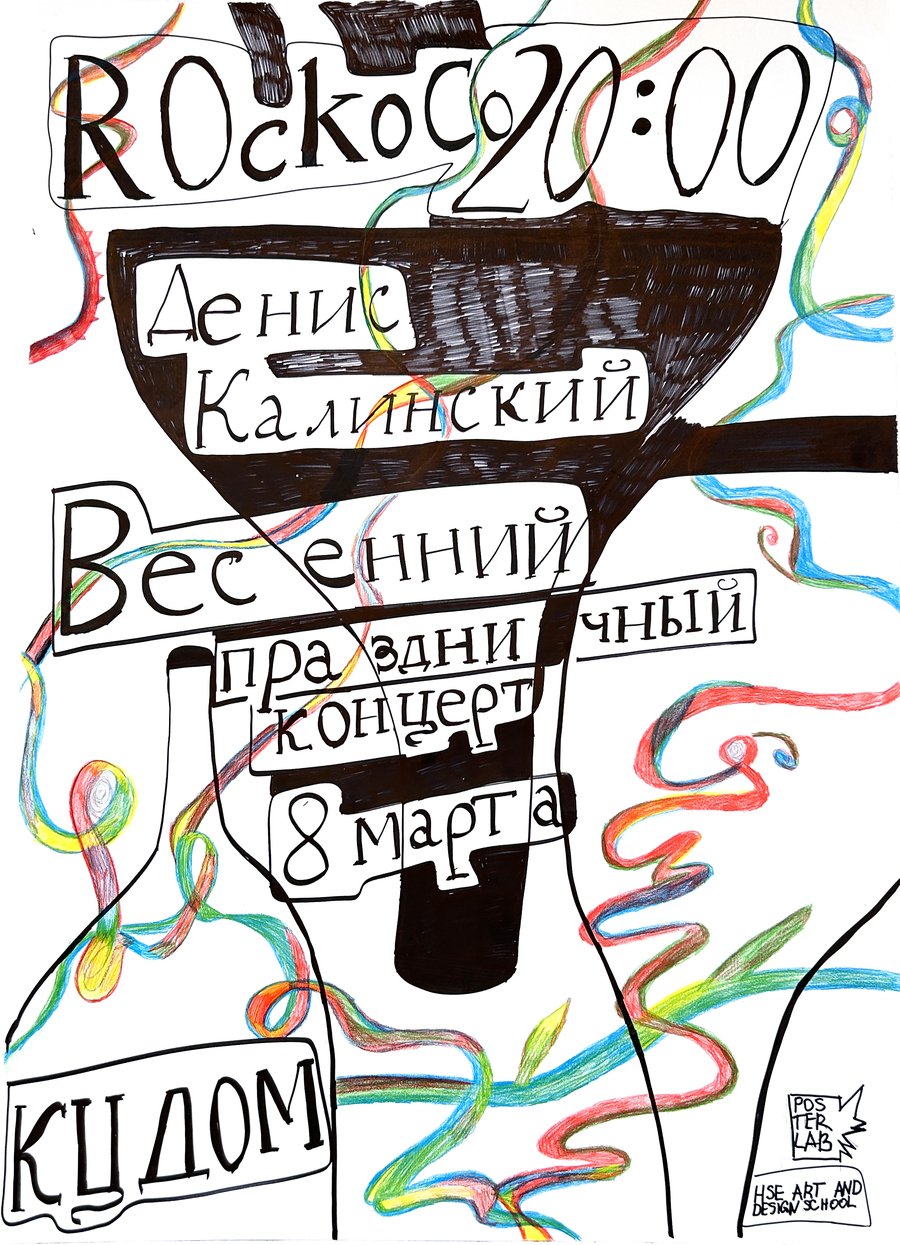 ROскоСо 20:00
Денис
Калинский
Весенний
праздничный
концерт
8 марта
КЦ ДОМ
POS
TER
LAB
HSE ART AND
DESIGN SCHOOL